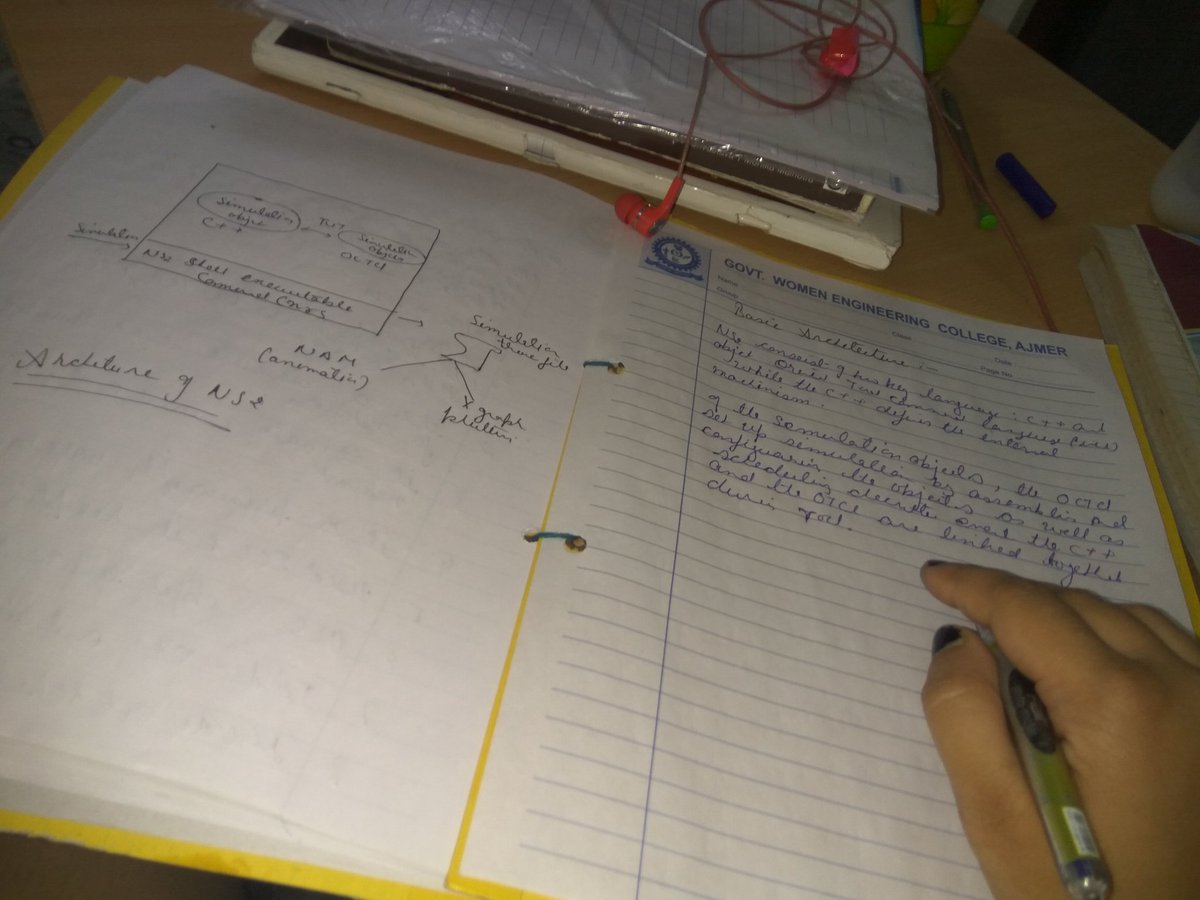 Simulation
objet
C++
Simulation
objects
OCTCl
Simulation
NS2 Shell executable
Simulation
NAM
(animation)
x graph
Architure of NS2
GOVT. WOMEN ENGINEERING COLLEGE, AJMER
Name
Class
Date
Group
Page No.
Basic Architecture :-
NS2 consist of two key language : C++ and
objet Orient Tool command language
while the C++ defines the internal
machinism.
of the simulation objects, the OCTCl
set up simulation by assemblin and
configuarin the objects as well as
scheduling discrete event the C++
and the OTCl are linked together
during